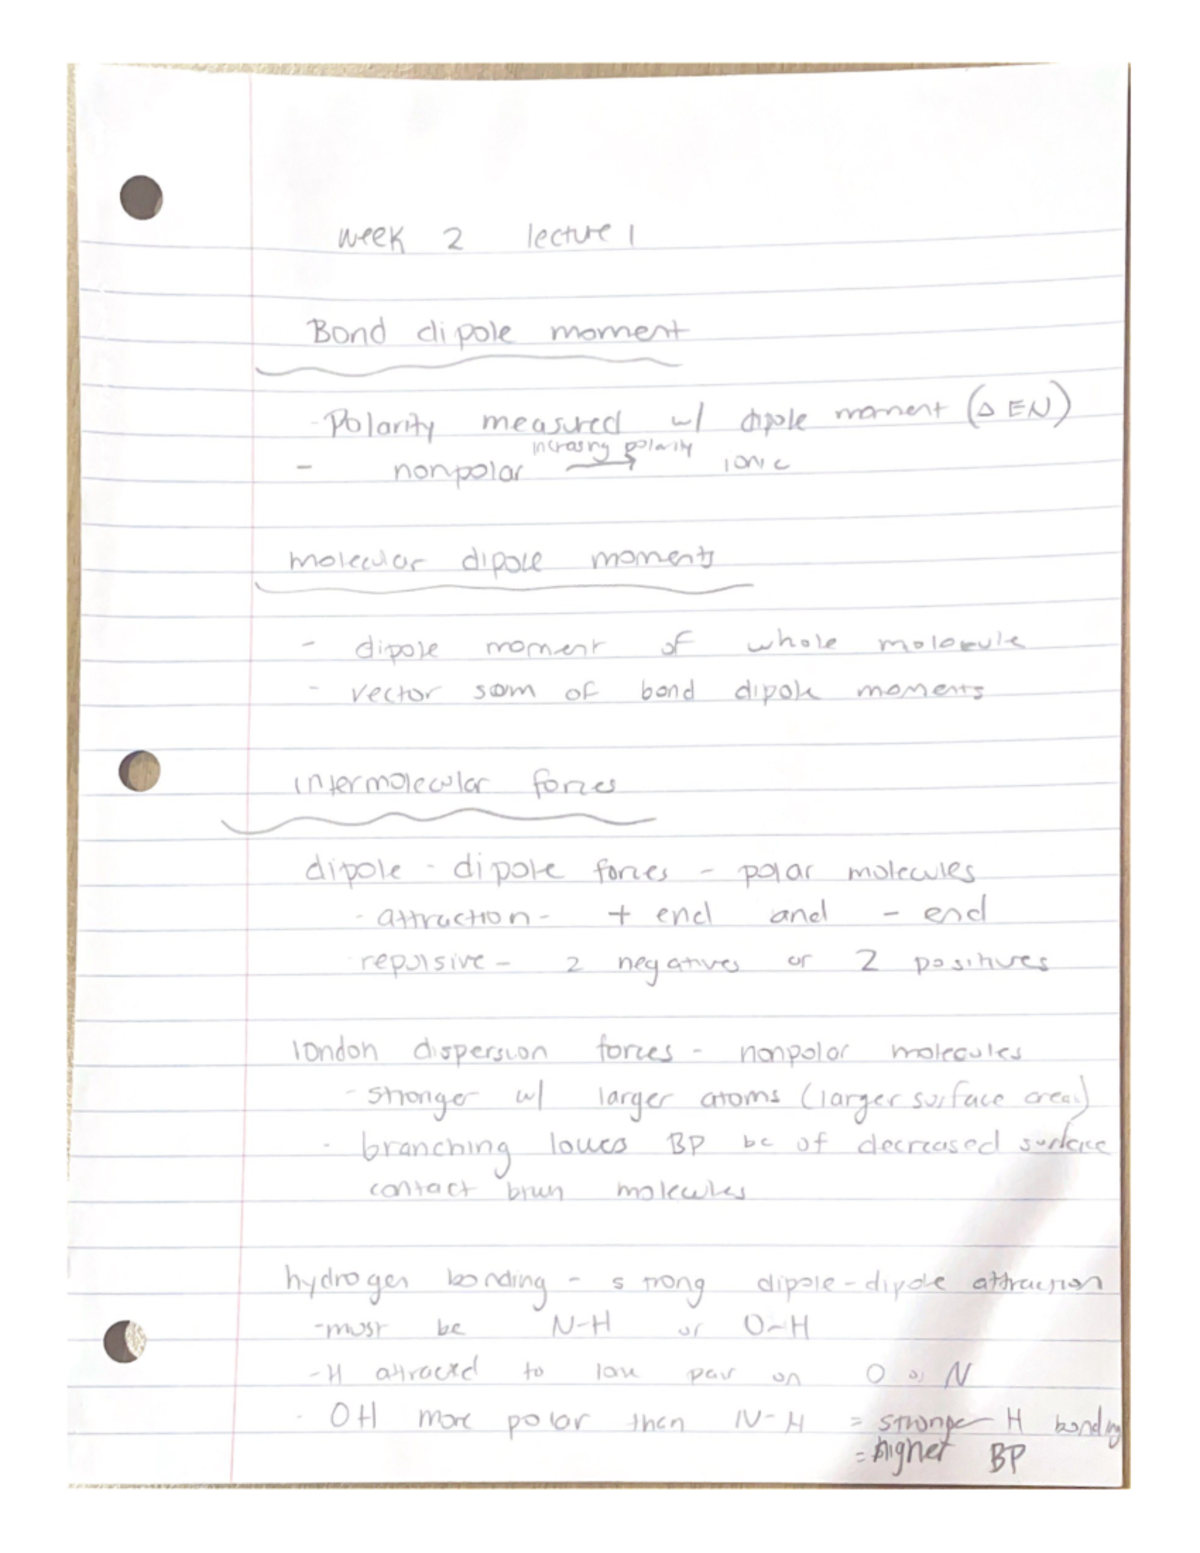 week 2 lecture 1
Bond dipole moment
- Polarity measured w/ dipole moment (Δ EN)
increasing polarity
- nonpolar → ionic
molecular dipole moments
- dipole moment of whole molecule
- vector som of bond dipole moments
intermolecular forces
dipole - dipole forces - polar molecules
- attraction - + end and - end
repulsive - 2 negatives or 2 positives
london dispersion forces - nonpolar molecules
- stronger w/ larger atoms (larger surface area)
- branching lowers BP bc of decreased surface
contact btwn molecules
hydrogen bonding - strong dipole-dipole attraction
- must be N-H or O-H
- H attracted to lone pair on O or N
- OH more polar then N-H = stronger H bonding
= higher BP